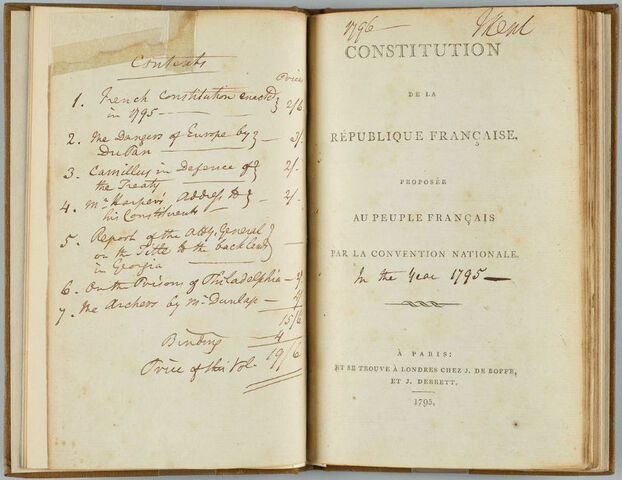 Contents
Price
1. French Constitution enacted
in 1795 — 2/6
2. The Dangers of Europe by
Du Pan — 3/.
3. Camillus in Defence of
the Treaty — 2/.
4. Mr Harper's Address to
his Constituents — 2/.
5. Report of the Atty. General
on the Title to the back land
in Georgia —
6. On the Prisons of Philadelphia —
7. The Archers by Mr Dunlap —
15/6
Binding 4
Price of this Vol. 19/6
1796
CONSTITUTION
DE LA
RÉPUBLIQUE FRANÇAISE,
PROPOSÉE
AU PEUPLE FRANÇAIS
PAR LA CONVENTION NATIONALE.
In the Year 1795 —
À PARIS:
ET SE TROUVE À LONDRES CHEZ J. DE BOFFE,
ET J. DEBRETT.
1795.